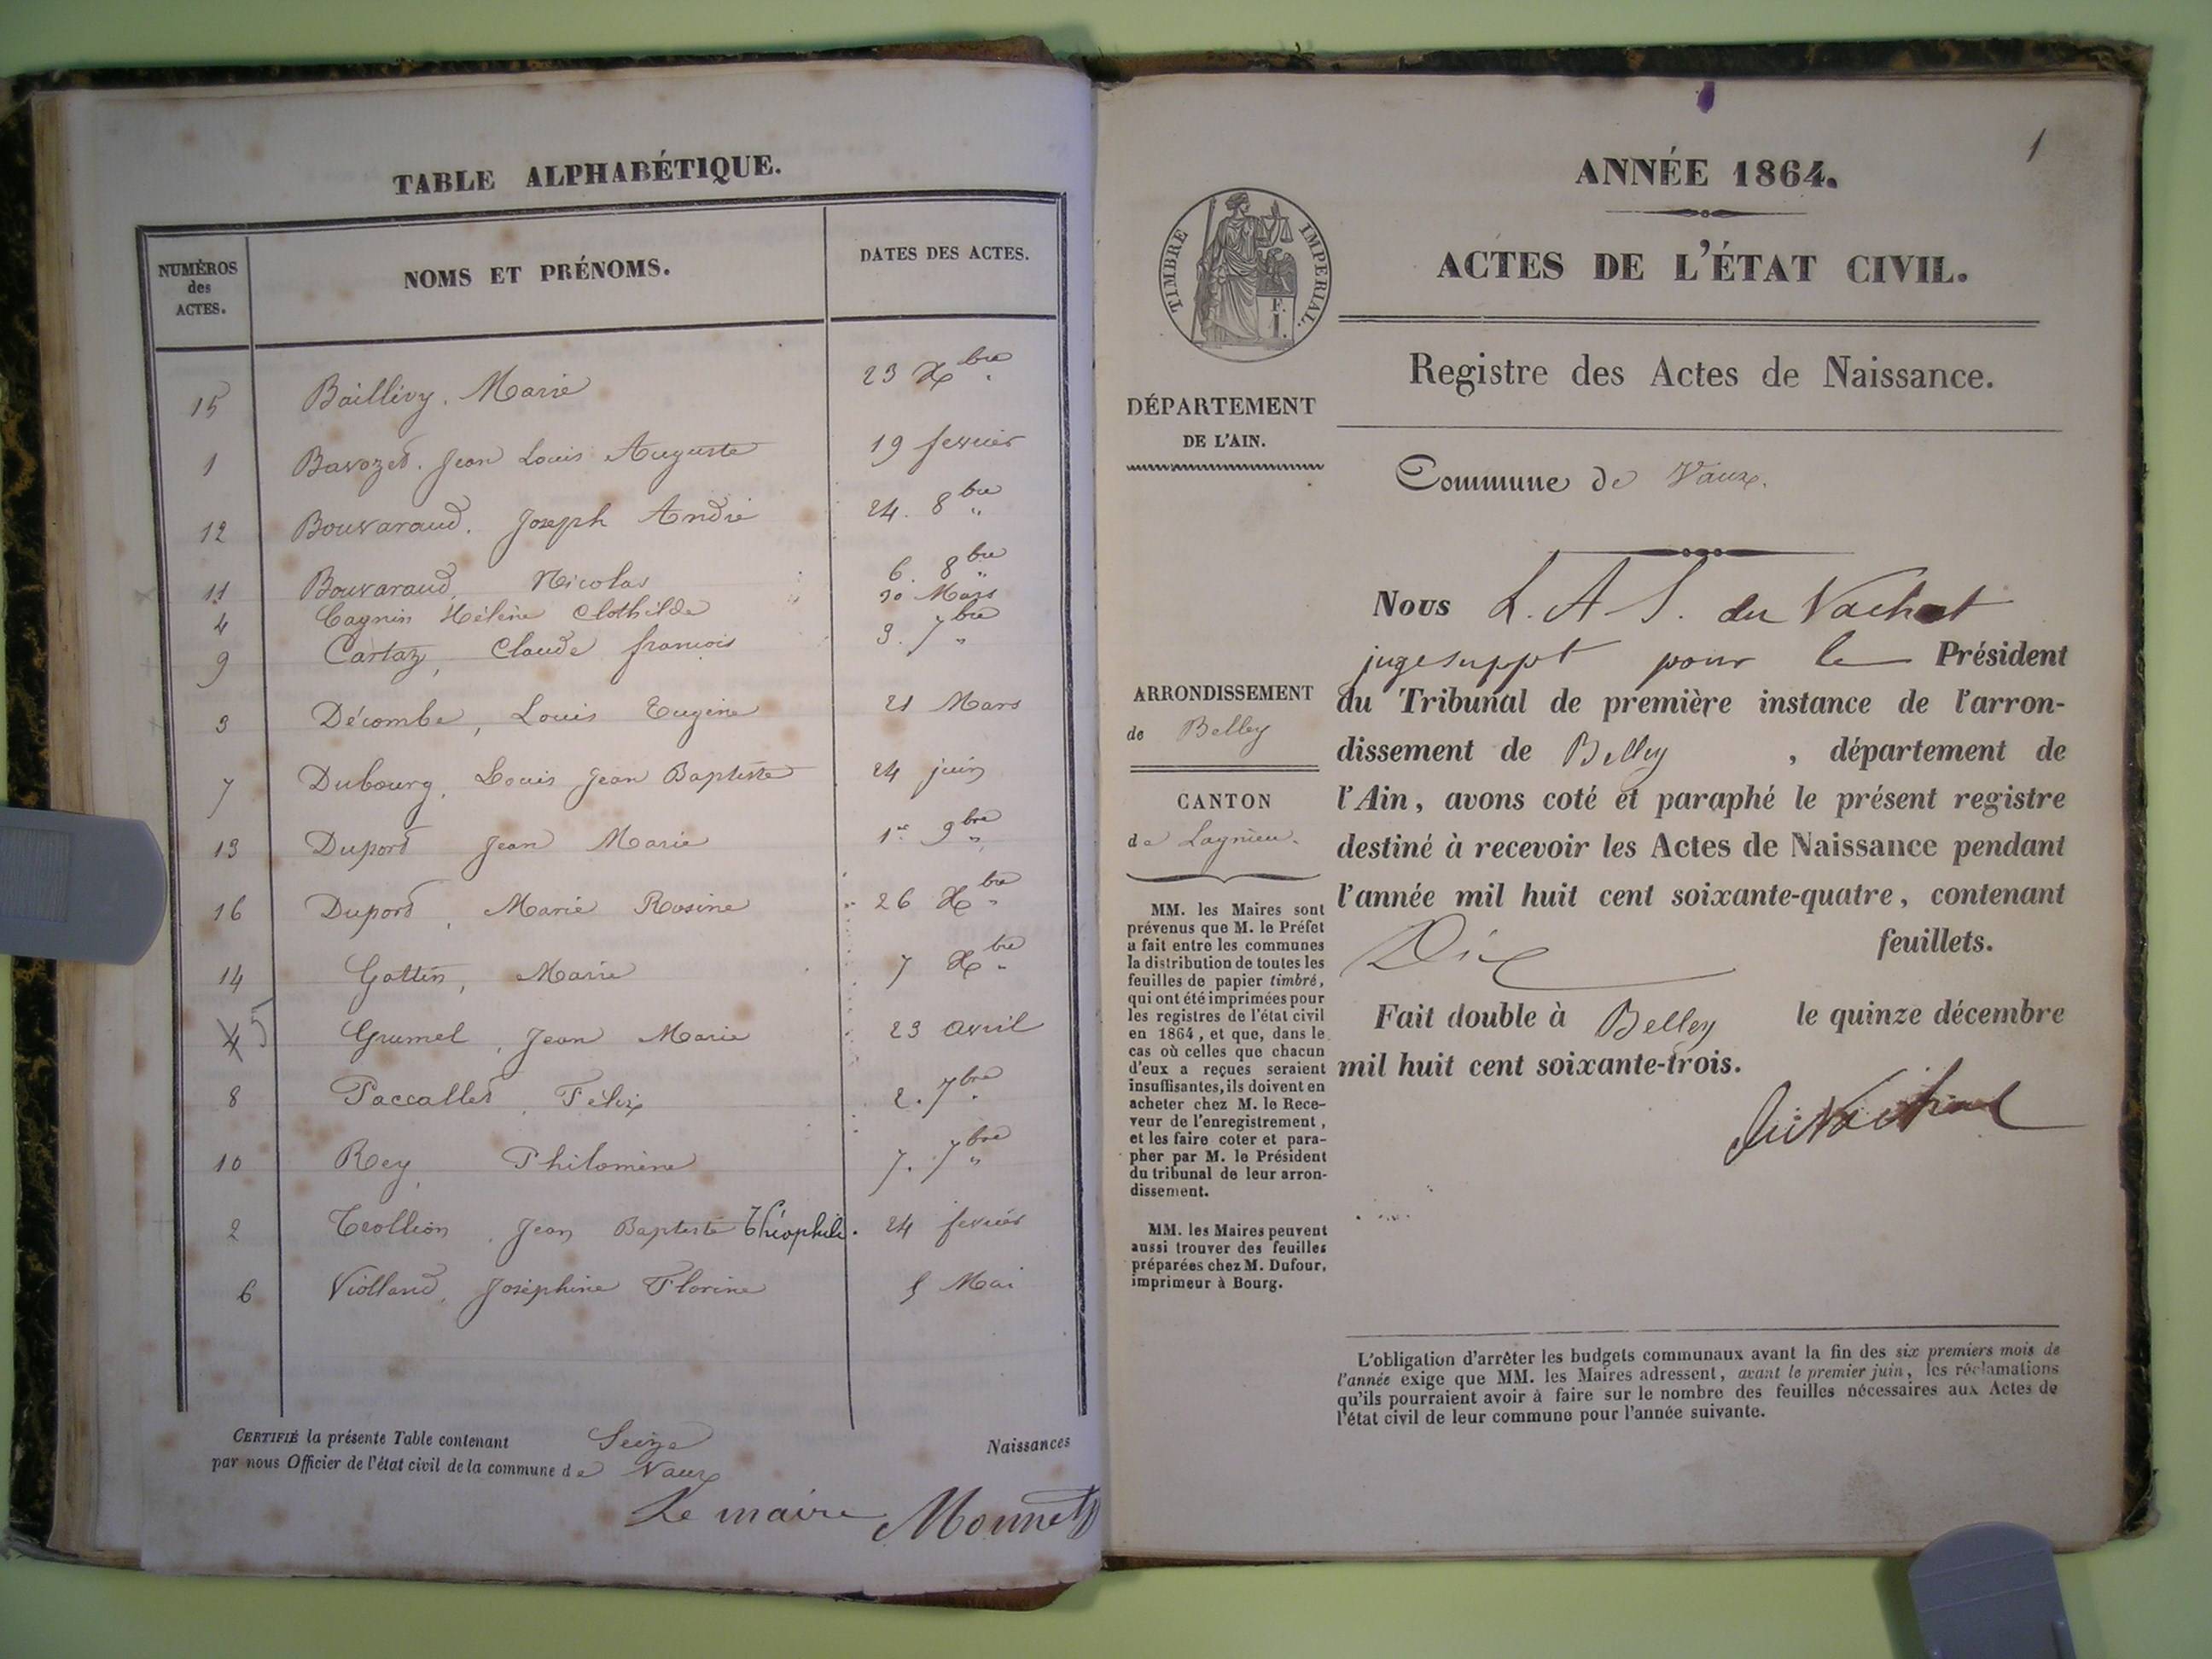 TABLE ALPHABÉTIQUE.
NUMÉROS
des
ACTES.
NOMS ET PRÉNOMS.
DATES DES ACTES.
15 Baillivy. Marie 23 Xbre
1 Bavozet. Jean Louis Auguste 19 fevrier
12 Bouvaraud. Joseph André 24. 8bre "
11 Bouvaraud, Nicolas 6. 8bre "
4 Cagnin Hélène Clothilde 30 Mars
9 Cartaz, Claude francois 3. 7bre "
3 Décombe, Louis Eugène 21 Mars
7 Dubourg, Louis Jean Baptiste 24 juin
13 Duport Jean Marie 1er 9bre "
16 Duport, Marie Rosine 26 Xbre "
14 Gottin, Marie 7 Xbre "
5 Grumel, Jean Marie 23 avril
8 Paccallet, Félix 2. 7bre
10 Rey, Philomène 7. 7bre "
2 Trollion, Jean Baptiste Théophile. 24 fevrier
6 Violland, Joséphine Florine 5 Mai
CERTIFIÉ la présente Table contenant Seize Naissances
par nous Officier de l'état civil de la commune de Vaux
Le maire Monnet
1
ANNÉE 1864.
ACTES DE L'ÉTAT CIVIL.
TIMBRE IMPERIAL.
F.
1.
Registre des Actes de Naissance.
DÉPARTEMENT
DE L'AIN.
Commune de Vaux.
ARRONDISSEMENT
de Belley
CANTON
de Lagnieu.
MM. les Maires sont
prévenus que M. le Préfet
a fait entre les communes
la distribution de toutes les
feuilles de papier timbré,
qui ont été imprimées pour
les registres de l'état civil
en 1864, et que, dans le
cas où celles que chacun
d'eux a reçues seraient
insuffisantes, ils doivent en
acheter chez M. le Rece-
veur de l'enregistrement,
et les faire coter et para-
pher par M. le Président
du tribunal de leur arron-
dissement.
MM. les Maires peuvent
aussi trouver des feuilles
préparées chez M. Dufour,
imprimeur à Bourg.
Nous L. A. S. du Vachat
juge suppt pour le Président
du Tribunal de première instance de l'arron-
dissement de Belley, département de
l'Ain, avons coté et paraphé le présent registre
destiné à recevoir les Actes de Naissance pendant
l'année mil huit cent soixante-quatre, contenant
Dix feuillets.
Fait double à Belley le quinze décembre
mil huit cent soixante-trois.
du Vachat
L'obligation d'arrêter les budgets communaux avant la fin des six premiers mois de
l'année exige que MM. les Maires adressent, avant le premier juin, les réclamations
qu'ils pourraient avoir à faire sur le nombre des feuilles nécessaires aux Actes de
l'état civil de leur commune pour l'année suivante.